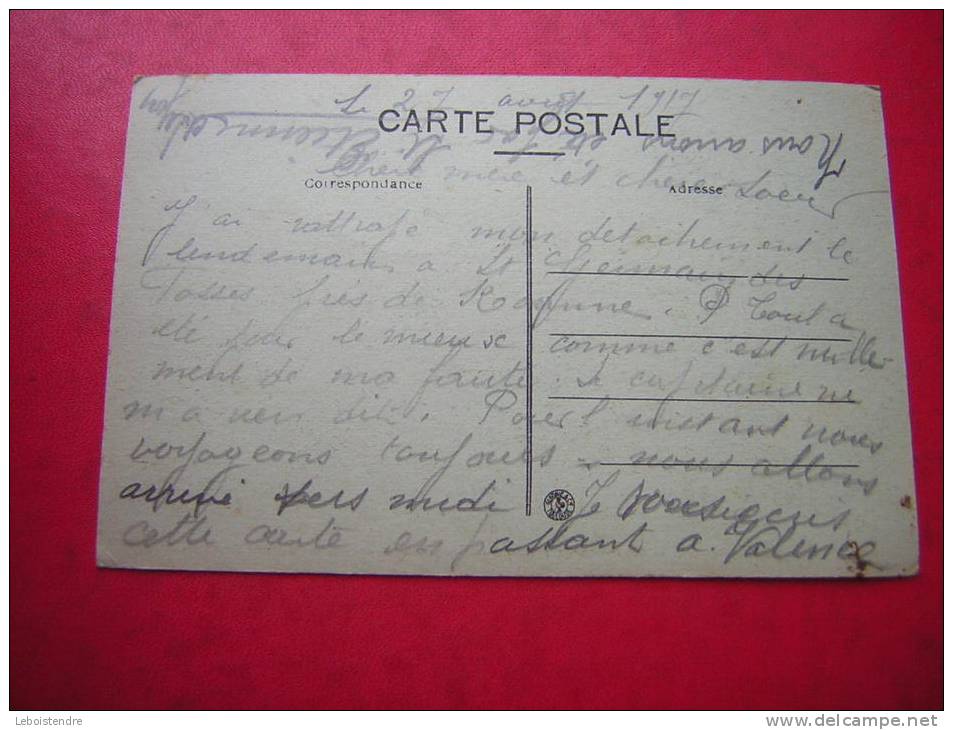 Le 27 avril 1917
CARTE POSTALE
Nous avons été
St Etienne
mere et chere Soeur
Correspondance
Adresse
J'ai rattrapé mon detachement le
lendemain a St Germain des
Fosses prés de Roanne. Tout a
eté pour le mieux comme c'est nulle-
ment de ma faute. Le capitaine ne
m'a rien dit. Pour l'instant nous
voyageons toujours nous allons
arrivé vers midi Je
cette carte en passant a Valence
Leboistendre
www.delcampe.net